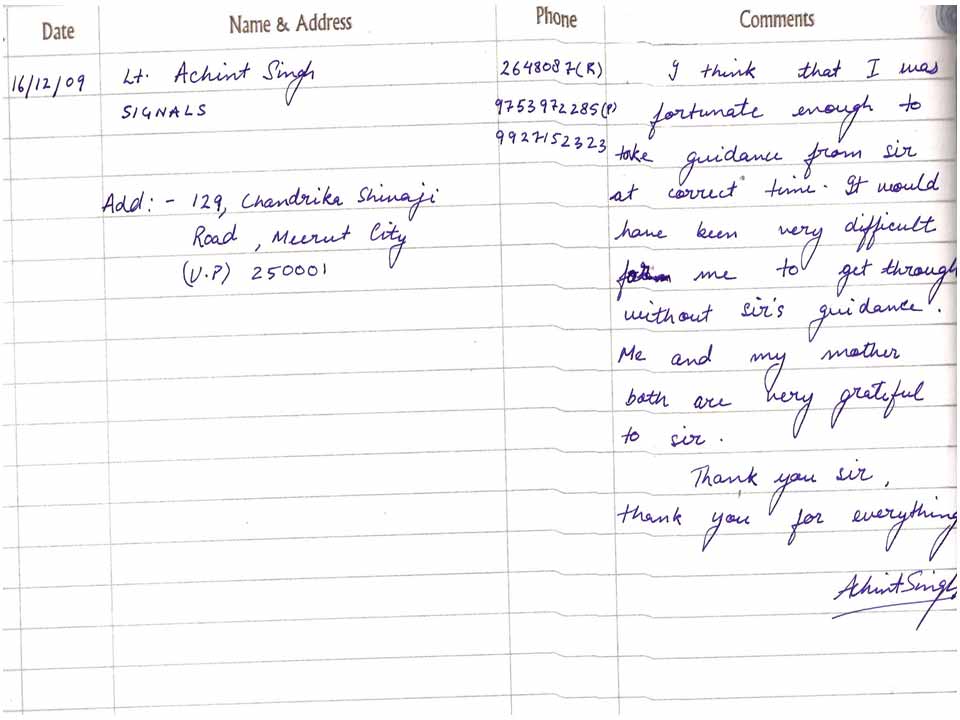 Date Name & Address Phone Comments
16/12/09 Lt. Achint Singh 2648087(R) I think that I was
SIGNALS 9753972285(P) fortunate enough to
9927152323 take guidance from sir
Add: - 129, Chandrika Shivaji at correct time. It would
Road, Meerut City have been very difficult
(U.P) 250001 for me to get through
without sir's guidance.
Me and my mother
both are very grateful
to sir.
Thank you sir,
thank you for everything
Achint Singh